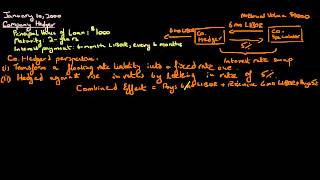 January 10, 2000
Company Hedger
Principal Value of Loan: $1000
Maturity: 2-years
Interest payment: 6-month LIBOR, every 6 months
Notional Value $1000
6mo LIBOR
6mo LIBOR
Co. Hedger
Co. Speculator
5%
Interest rate swap
Co. Hedger's perspective.
(i) Transform a floating rate liability into a fixed rate one.
(ii) Hedged against rise in rates by locking in rate of 5%.
Combined Effect = Pays 6mo LIBOR + Receive 6mo LIBOR + Pays 5%